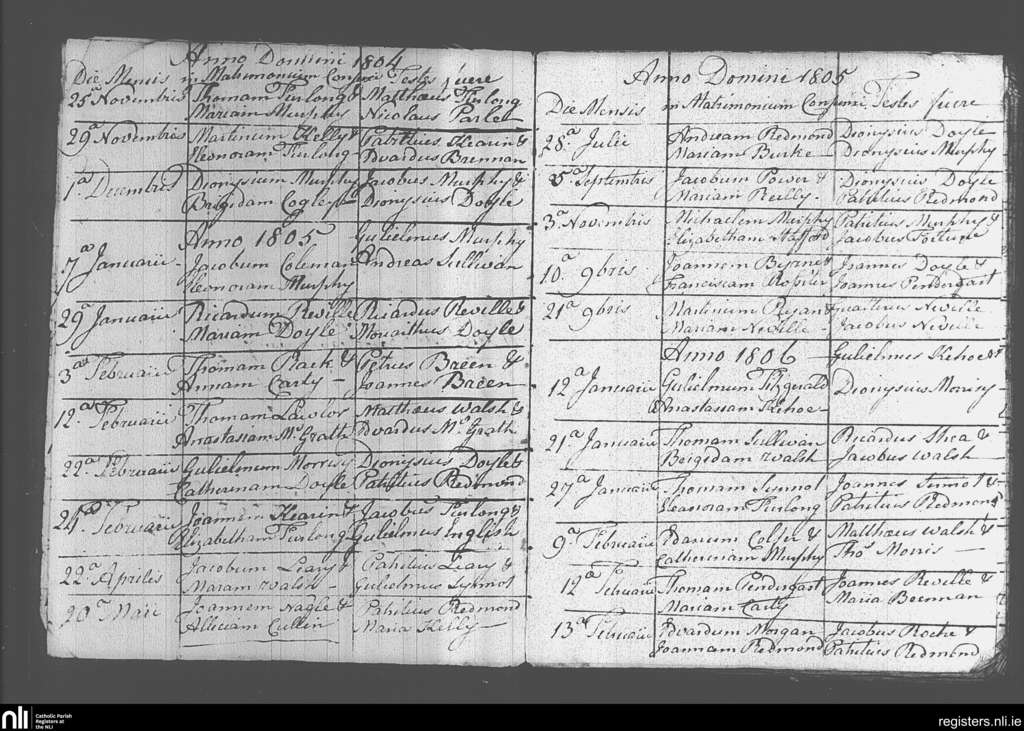 Anno Domini 1804
Die Mensis in Matrimonium Conjunxi Testes fuere
25a Novembris Thomam Furlong & Matthæus Furlong
Mariam Murphy Nicolaus Parle
29a Novembris Martinum Kelly & Patritius Kearin &
Elenoram Furlong Edvardus Brennan
1a Decembris Dionysium Murphy Jacobus Murphy &
Brigidam Cogley Dionysius Doyle
Anno 1805 Gulielmus Murphy
7a Januarii Jacobum Coleman Andreas Sullivan
Elenoram Murphy
29a Januarii Ricardum Reville Ricardus Reville &
Mariam Doyle Doyle
3a Februarii Thomam Rack & Petrus Breen &
Annam Carty Joannes Breen
12a Februarii Thomam Lawlor Matthæus Walsh &
Anastasiam McGrath Edvardus McGrath
22a Februarii Gulielmum Morrisy Dionysius Doyle &
Catherinam Doyle Patritius Redmond
24a Februarii Joannem Kearin & Jacobus Furlong &
Elizabetham Furlong Gulielmus English
22a Aprilis Jacobum Leary & Patritius Leary &
Mariam Walsh Gulielmus Synnot
20a Maii Joannem Nagle & Patritius Redmond
Cullin Maria Kelly
Anno Domini 1805
Die Mensis in Matrimonium Conjunxi Testes fuere
28a Julii Andream Redmond Dionysius Doyle
Mariam Burke Dionysius Murphy
Septembris Jacobum Power & Dionysius Doyle
Mariam Reilly Patritius Redmond
3a Novembris Michaelem Murphy Patritius Murphy &
Elizabetham Stafford Jacobus Fortune
10a 9bris Joannem Byrne & Joannes Doyle &
Franciscam Rossiter Joannes Pendergast
21a 9bris Martinum Ryan & Neville
Mariam Neville Jacobus Neville
Anno 1806 Gulielmus Kehoe &
12a Januarii Gulielmum Fitzgerald Dionysius Morrisy
Anastasiam Kehoe
21a Januarii Thomam Sullivan Ricardus Shea &
Brigidam Walsh Jacobus Walsh
27a Januarii Thomam Synnot Joannes Sinnot &
Eleanoram Furlong Patritius Redmond
9a Februarii Colfer & Matthæus Walsh &
Catherinam Murphy Thos Morris
12a Februarii Thomam Pendergast Joannes Reville &
Mariam Carty Maria Brennan
13a Februarii Edvardum Morgan Jacobus Roche &
Joannam Redmond Patritius Redmond
nli Catholic Parish
Registers at
the NLI
registers.nli.ie